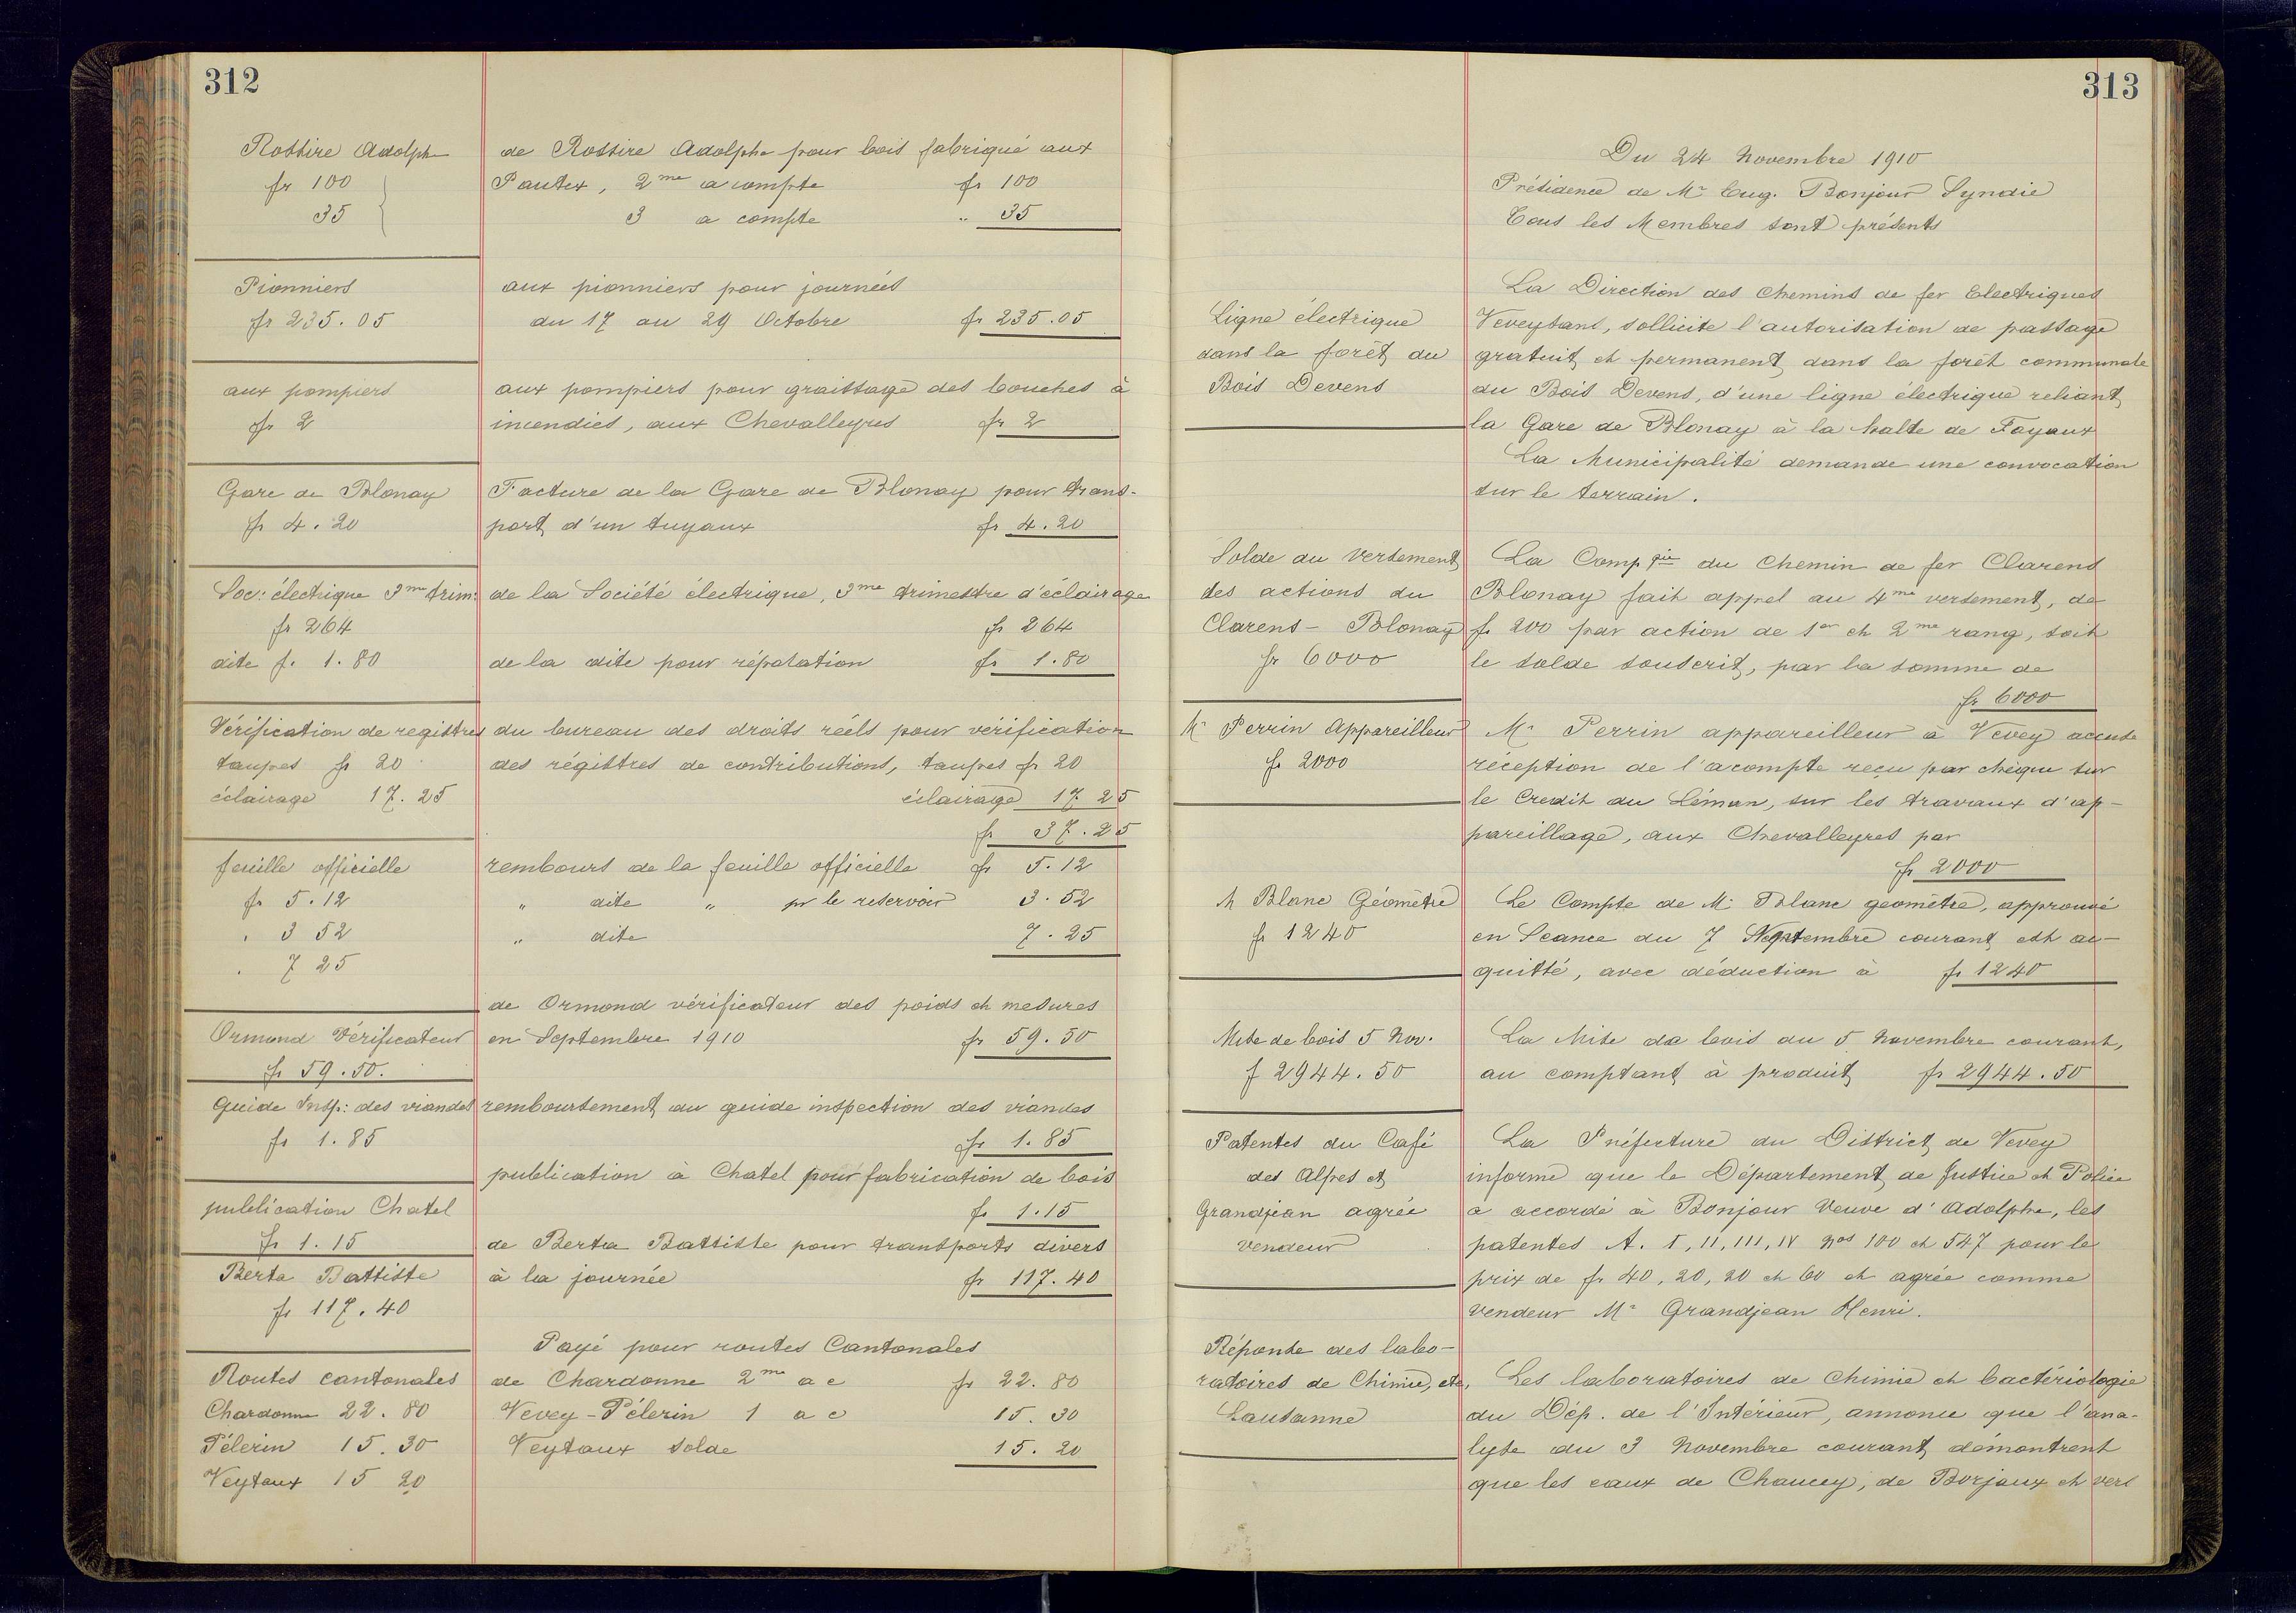 312
Rossire Adolphe
fr 100
35
Pionniers
fr 235.05
aux pompiers
fr 2
Gare de Blonay
fr 4.20
Soc: électrique 3me trim:
fr 264
dite f. 1.80
Vérification de registres
taupes fr 20
éclairage 17.25
feuille officielle
fr 5.12
" 3 52
" 7 25
Ormond Vérificateur
fr 59.50.
Guide Insp: des viandes
fr 1.85
publication Chatel
fr 1.15
Berta Battiste
fr 117.40
Routes cantonales
Chardonne 22.80
Pélerin 15.30
Veytaux 15 20
de Rossire Adolphe pour bois fabriqué aux
Pautex, 2me a compte fr 100
3 a compte " 35
aux pionniers pour journées
du 17 au 29 Octobre fr 235.05
aux pompiers pour graissage des bouches à
incendies, aux Chevalleyres fr 2
Facture de la Gare de Blonay pour trans-
port d'un tuyaux fr 4.20
de la Société électrique, 3me trimestre d'éclairage
fr 264
de la dite pour réparation fr 1.80
du bureau des droits réels pour vérification
des régistres de contributions, taupes fr 20
éclairage 17.25
fr 37.25
rembours de la feuille officielle fr 5.12
" dite " pr le reservoir 3.52
" dite 7.25
de Ormond vérificateur des poids et mesures
en Septembre 1910 fr 59.50
remboursement du guide inspection des viandes
fr 1.85
publication à Chatel pour fabrication de bois
fr 1.15
de Berta Battiste pour transports divers
à la journée fr 117.40
Payé pour routes Cantonales
de Chardonne 2me a c fr 22.80
Vevey-Pélerin 1 a c 15.30
Veytaux solde 15.20
313
Du 24 Novembre 1910
Présidence de Mr Eug. Bonjour Syndic
Tous les Membres sont présents
Ligne électrique
dans la forêt du
Bois Devens
La Direction des Chemins de fer Electriques
Veveysans, sollicite l'autorisation de passage
gratuit et permanent dans la forêt communale
du Bois Devens, d'une ligne électrique reliant
la Gare de Blonay à la halte de Fayaux
La Municipalité demande une convocation
sur le terrain.
Solde du versement
des actions du
Clarens - Blonay
fr 6000
La Compgie du Chemin de fer Clarens
Blonay fait appel au 4me versement, de
fr 200 par action de 1er et 2me rang, soit
le solde souscrit, par la somme de
fr 6000
Mr Perrin Appareilleur
fr 2000
Mr Perrin appareilleur à Vevey accuse
réception de l'acompte reçu par chèque sur
le Credit du Léman, sur les travaux d'ap-
pareillage, aux Chevalleyres par
fr 2000
M Blanc Géomètre
fr 1240
Le Compte de Mr Blanc géomètre, approuvé
en Séance du 7 courant est ac-
quitté, avec déduction à fr 1240
Mise de bois 5 Nov.
f 2944.50
La Mise de bois du 5 Novembre courant,
au comptant à produit fr 2944.50
Patentes du Café
des Alpes et
Grandjean agrée
vendeur
La Préfecture du District de Vevey
informe que le Département de Justice et Police
a accordé à Bonjour Veuve d'Adolphe, les
patentes A. I, II, III, IV Nos 100 et 547 pour le
prix de fr 40, 20, 20 et 60 et agrée comme
vendeur Mr Grandjean Henri.
Réponse des labo-
ratoires de Chimie, etc,
Lausanne
Les laboratoires de chimie et bactériologie
du Dép. de l'Intérieur, annonce que l'ana-
lyse du 3 Novembre courant démontrent
que les eaux de Chaucey, de Borjaux et vers